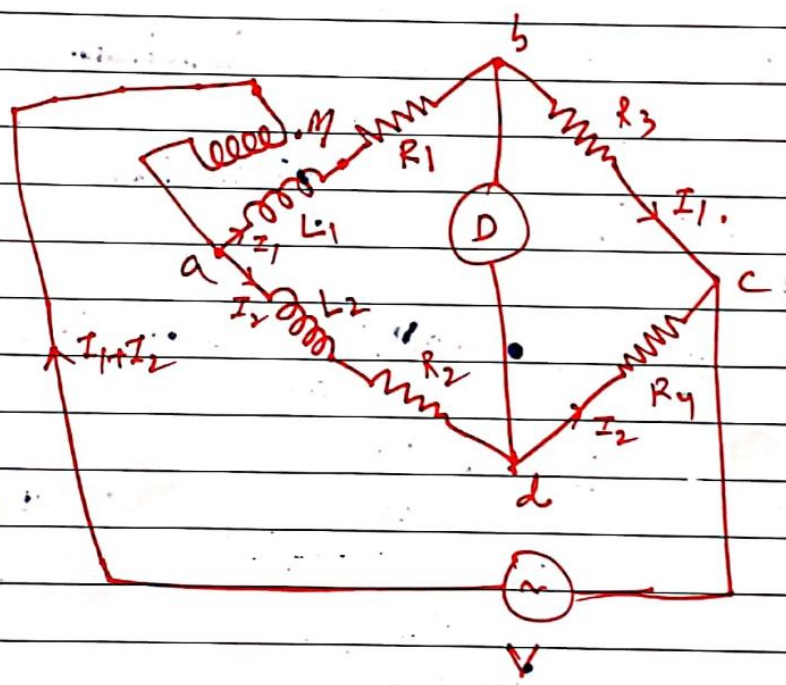 b
M
R1
R3
I1.
L1
D
a
I1
c
I2
L2
I1+I2
R2
R4
I2
d
~
V